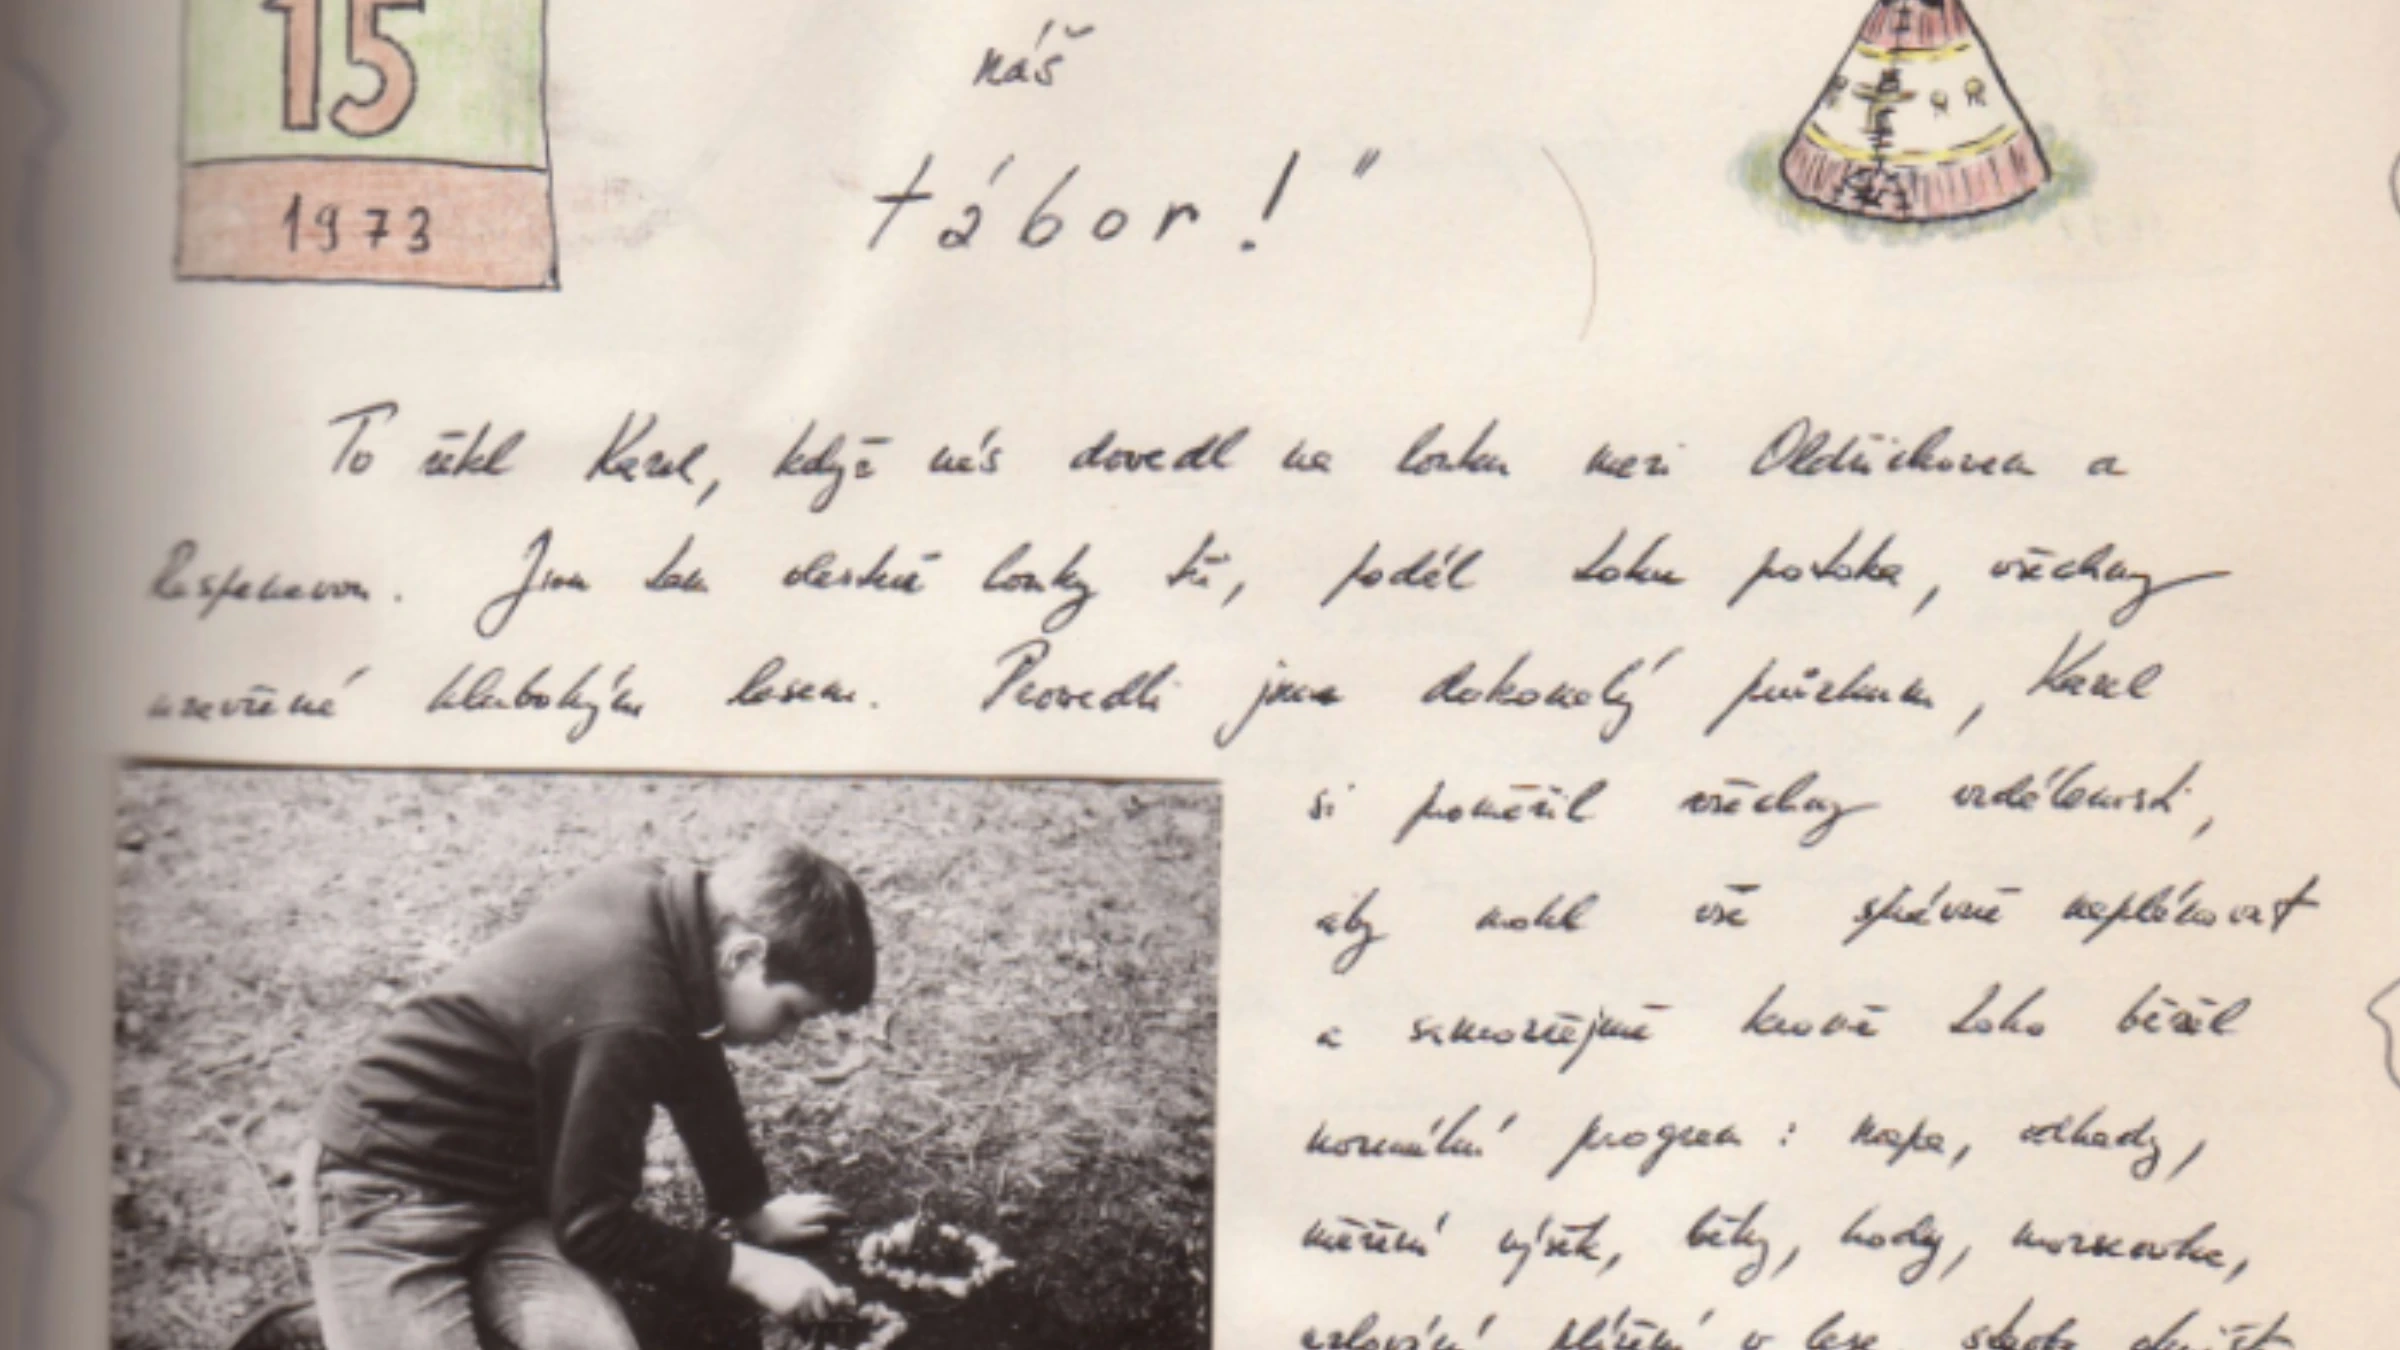 15
1973
náš
tábor!"
To řekl Karel, když nás dovedl na louku mezi Oldřichovem a
Raspenavou. Jsou tam vlastně louky tři, podél toku potoka, všechny
uzavřené hlubokým lesem. Provedli jsme dokonalý průzkum, Karel
si poměřil všechny vzdálenosti,
aby mohl vše správně naplánovat
a samozřejmě kromě toho běžel
normální program: mapa, odhady,
měření výšek, běhy, hody, morseovka,
uzlování, plížení v lese, stavba